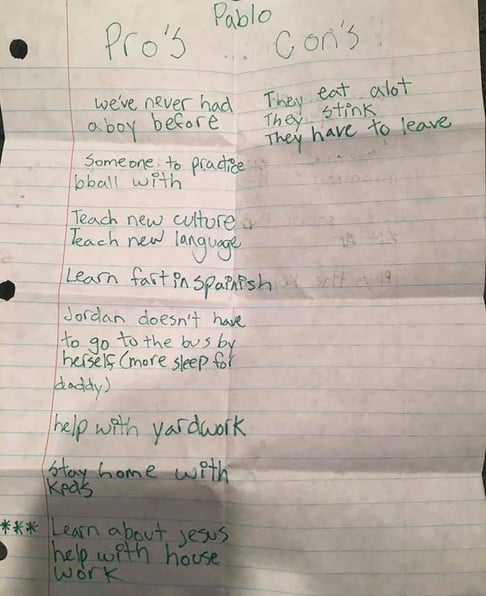 Pablo
Pro's
Con's
we've never had
a boy before
Someone to practice
bball with
Teach new culture
Teach new language
Learn fart in Spainish
Jordan doesn't have
to go to the bus by
herself (more sleep for
daddy)
help with yardwork
stay home with
Kids
*** Learn about Jesus
help with house
work
They eat alot
They stink
They have to leave